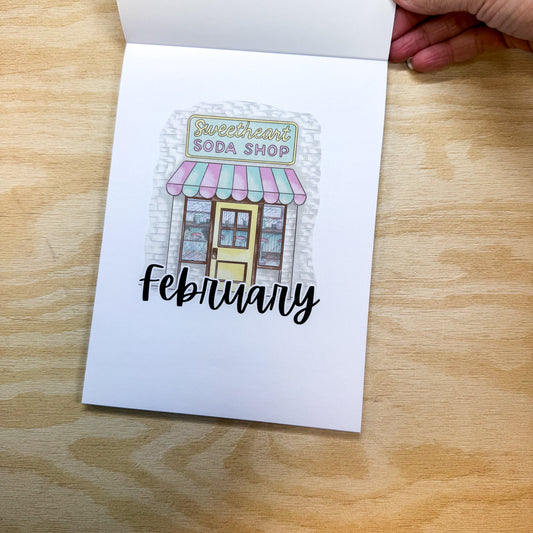 Sweetheart
SODA SHOP
February